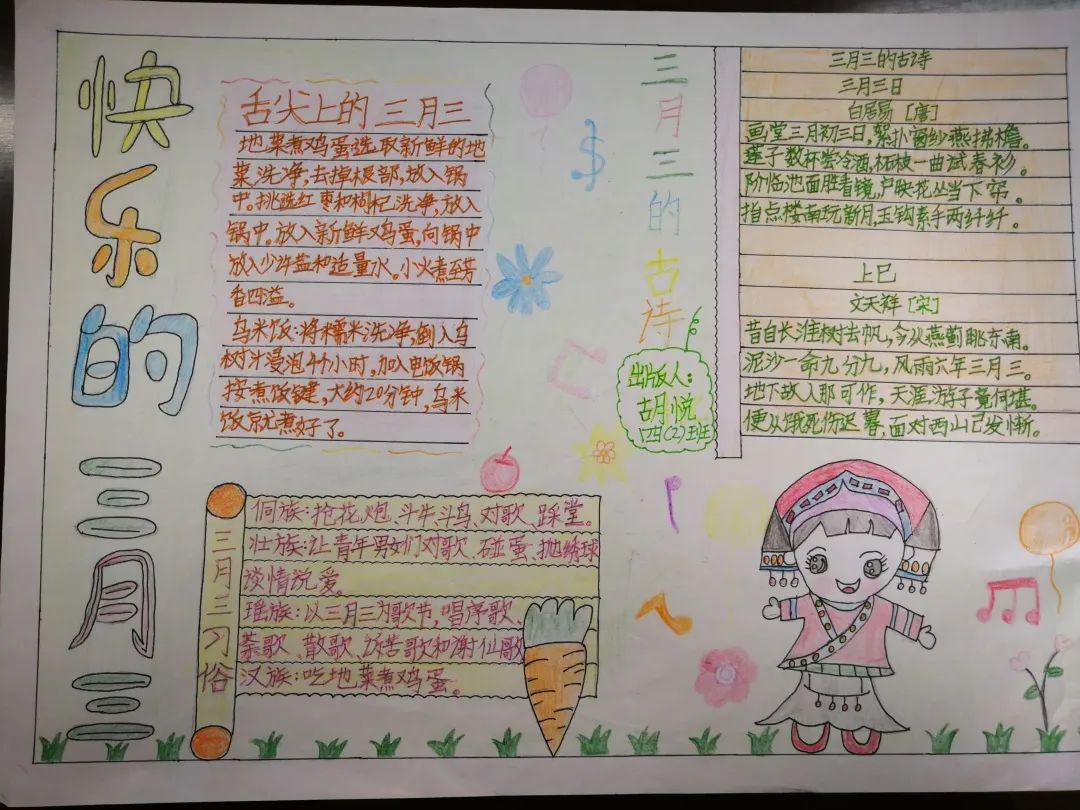 快乐的三月三
舌尖上的三月三
地菜煮鸡蛋选取新鲜的地
菜洗净,去掉根部,放入锅
中。挑选红枣和枸杞洗净,放入
锅中。放入新鲜鸡蛋,向锅中
放入少许盐和适量水。小火煮至芳
香四溢。
乌米饭:将糯米洗净,倒入乌
树汁浸泡4个小时,加入电饭锅
按煮饭键,大约20分钟,乌米
饭就煮好了。
三月三习俗
侗族:抢花炮、斗牛、斗鸟、对歌、踩堂。
壮族:让青年男女们对歌、碰蛋、抛绣球
谈情说爱。
瑶族:以三月三为歌节,唱序歌、
茶歌、散歌、诉苦歌和谢仙歌
汉族:吃地菜煮鸡蛋。
三月三的古诗
出版人:
胡悦
四(2)班
三月三的古诗
三月三日
白居易[唐]
画堂三月初三日,絮扑窗纱燕拂檐。
莲子数杯尝冷酒,柘枝一曲试春衫。
阶临池面胜看镜,户映花丛当下帘。
指点楼南玩新月,玉钩素手两纤纤。
上巳
文天祥[宋]
昔自长淮树去帆,今从燕蓟眺东南。
泥沙一命九分九,风雨六年三月三。
地下故人那可作,天涯游子竟何堪。
便从饿死伤迟暮,面对西山已发惭。